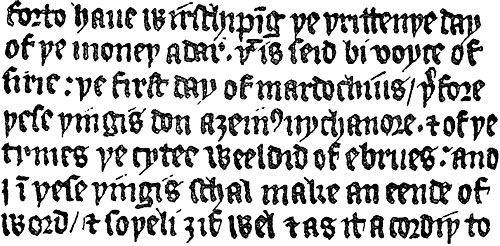 forto haue wirschipīg þe þrittenþe day
of þe moneþ adar· þͭ is seid bi voyce of
sirie: þe first day of mardochius/ þͬfore
þese þingis don aȝeinꝰ nychanore· ⁊ of þe
tymes þe cytee weeldid of ebrues: and
j ī þese þingis schal make an eende of
word/ ⁊ soþeli ȝif wel ⁊ as it acordiþ to